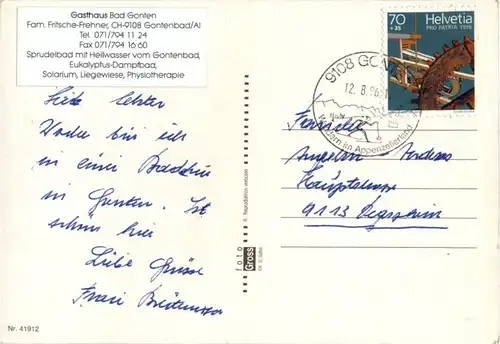 Gasthaus Bad Gonten
Fam. Fritsche-Frehner, CH-9108 Gontenbad/AI
Tel. 071/794 11 24
Fax 071/794 16 60
Sprudelbad mit Heilwasser vom Gontenbad,
Eukalyptus-Dampfbad,
Solarium, Liegewiese, Physiotherapie
70
+35
Helvetia
PRO PATRIA 1996
9108 GON
12. 8. 96
Wandern im Appenzellerland
Seit letzter
Woche bin ich
in einer
in Gonten. Ist
schön hier
Liebe Grüsse
Frau
Familie
Hauptstrasse
9113 Degersheim
foto
Gross
Reproduktion verboten
Nr. 41912